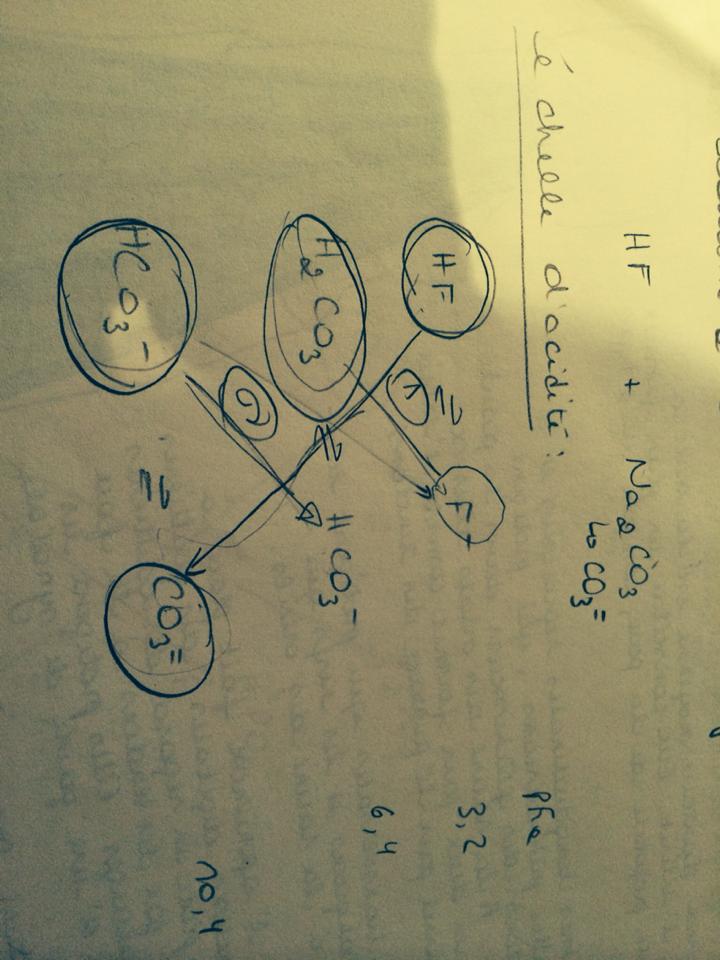 HF + Na2CO3
↳ CO3=
échelle d'acidité :
pka
HF ⇌ F- 3,2
①
H2CO3 ⇌ HCO3- 6,4
HCO3- ⇌ CO3= 10,4